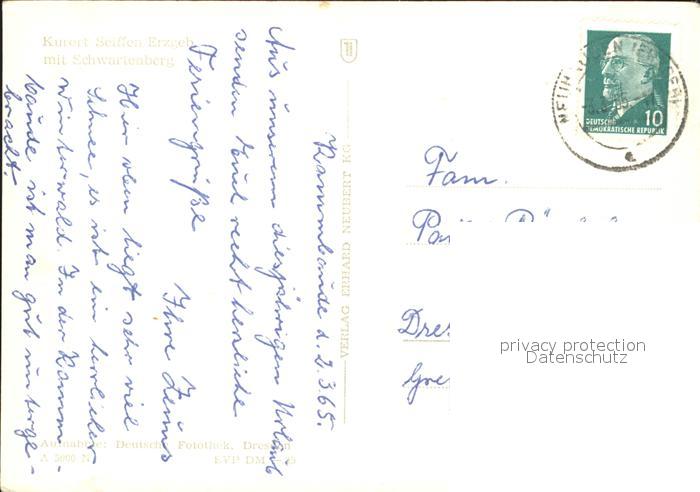 Kurort Seiffen Erzgeb.
mit Schwartenberg
Kammbaude d. 2.3.65.
Aus unserem diesjährigen Urlaub
senden Euch recht herzliche
Feriengrüße
Ihre
Hier oben liegt sehr viel
Schnee, es ist ein herrlicher
Winterwald. In der Kamm-
baude ist man gut unterge-
bracht.
VERLAG ERHARD NEUBERT KG
Aufnahme: Deutsche Fotothek, Dresden
EVP DM
DEUTSCHE
DEMOKRATISCHE REPUBLIK
10
Fam.
privacy protection
Datenschutz